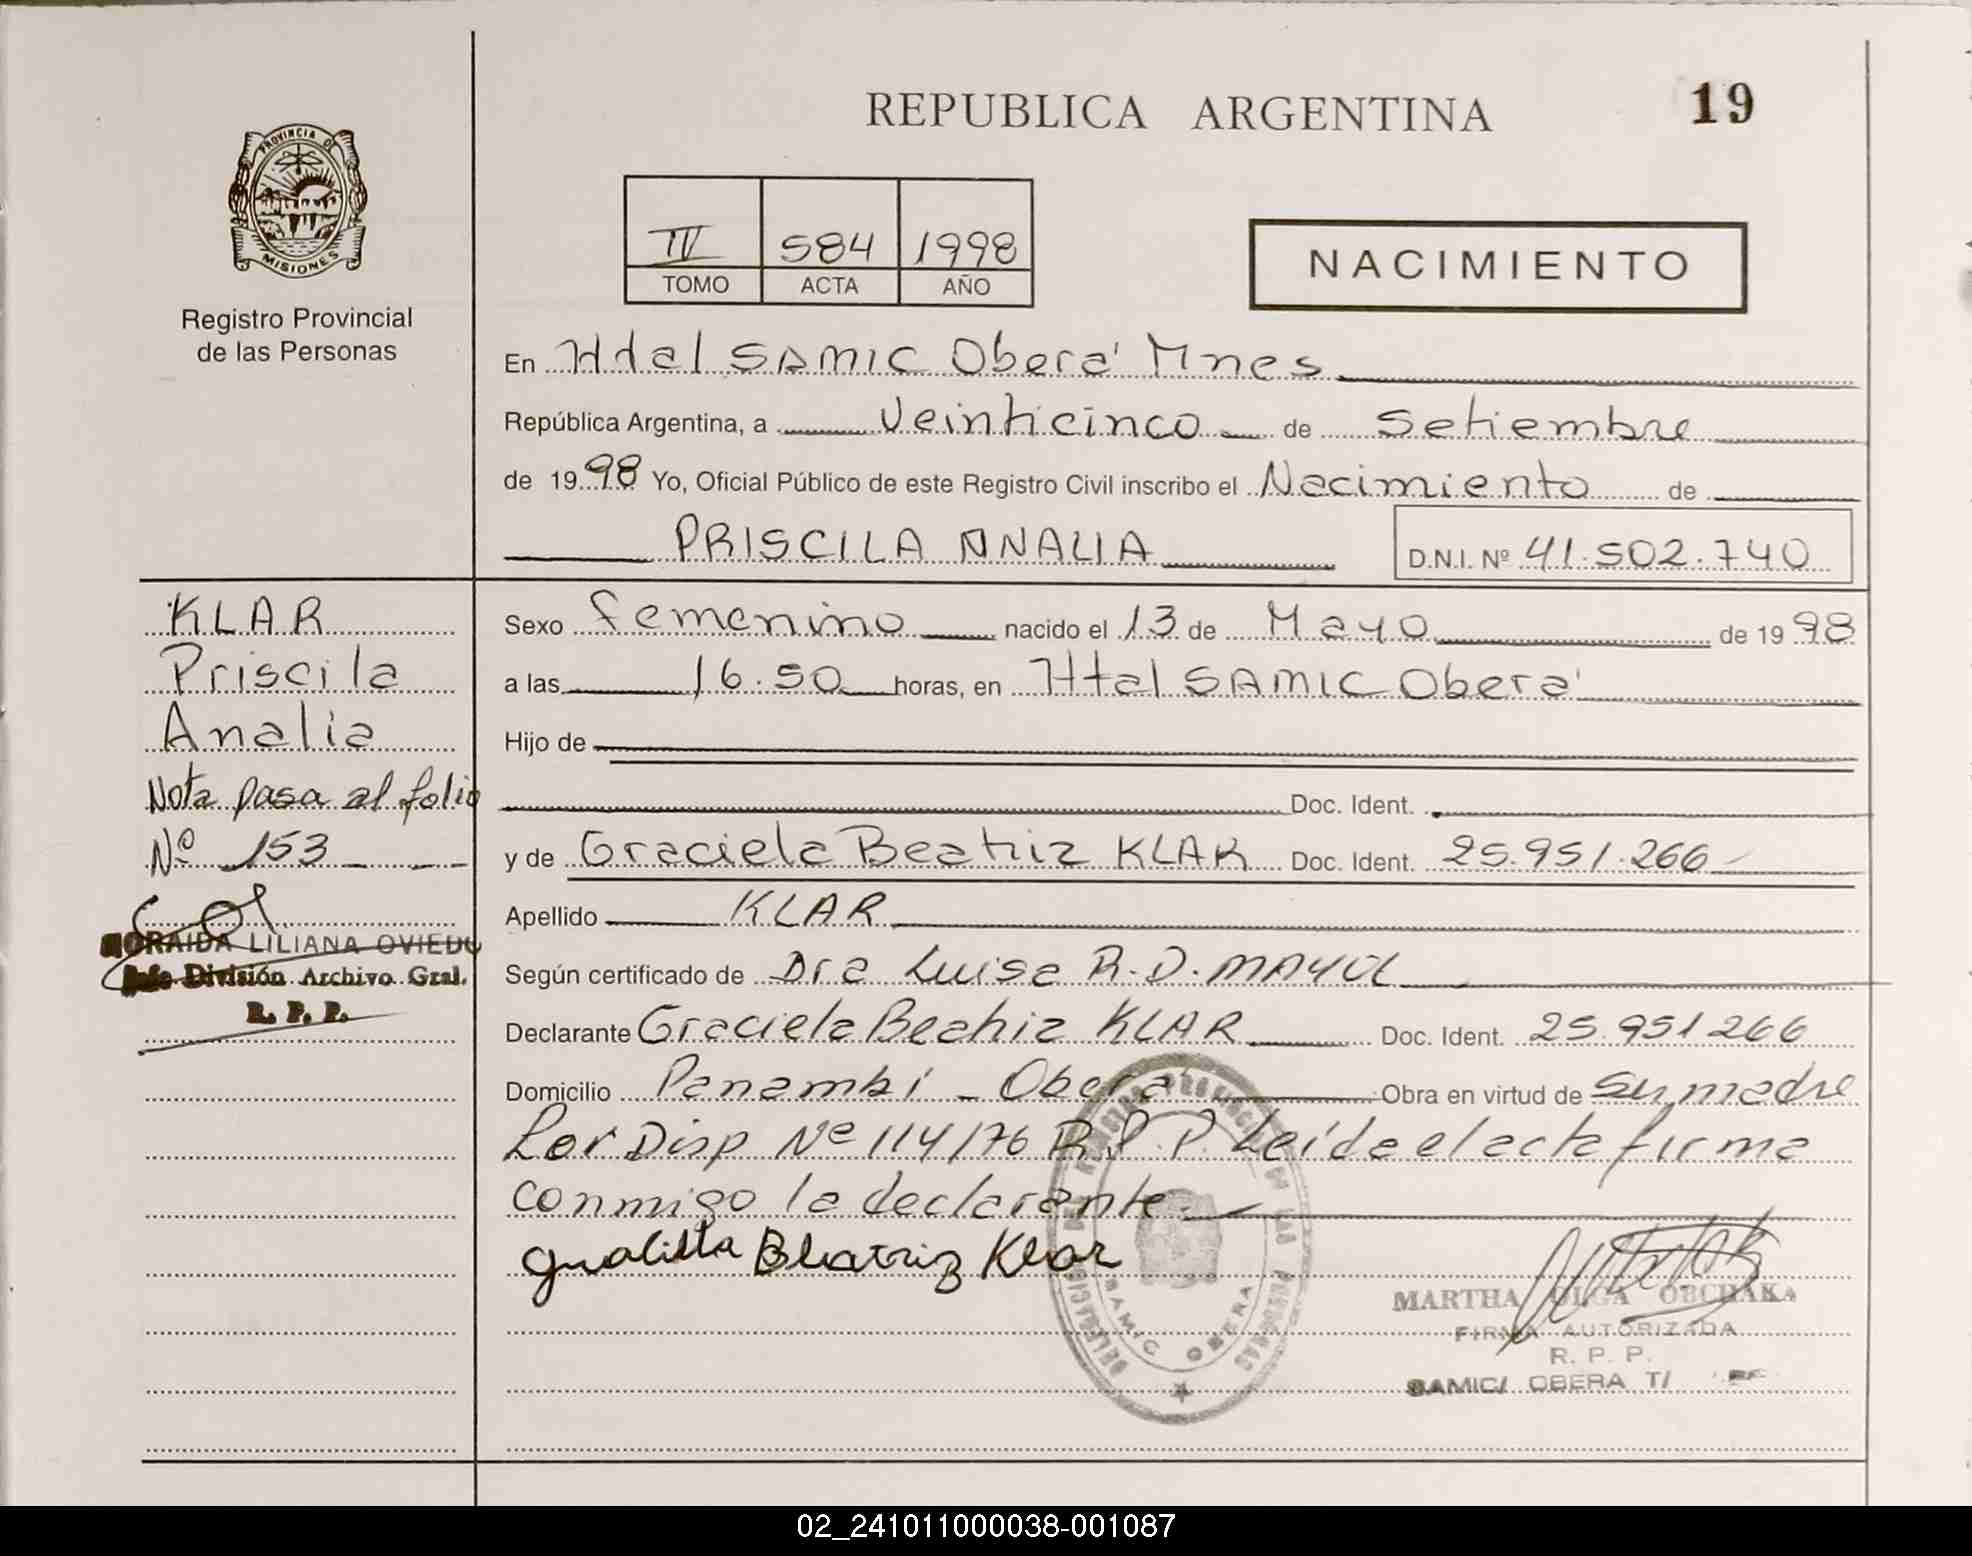 REPUBLICA ARGENTINA
19
PROVINCIA DE
MISIONES
Registro Provincial
de las Personas
IV 584 1998
TOMO ACTA AÑO
NACIMIENTO
En Htal SAMIC Oberá Mnes
República Argentina, a Veinticinco de Setiembre
de 1998 Yo, Oficial Público de este Registro Civil inscribo el Nacimiento de
PRISCILA ANALIA D.N.I. Nº 41.502.740
KLAR
Priscila
Analia
Nota pasa al folio
Nº 153
LILIANA OVIEDO
División Archivo Gral.
R. P. P.
Sexo femenino nacido el 13 de Mayo de 1998
a las 16.50 horas, en Htal SAMIC Oberá
Hijo de
Doc. Ident.
y de Graciela Beatriz KLAR Doc. Ident. 25.951.266
Apellido KLAR
Según certificado de Dra Luisa R.D. MAYOL
Declarante Graciela Beatriz KLAR Doc. Ident. 25.951266
Domicilio Panambí - Oberá Obra en virtud de su madre
Por Disp Nº 114/76 R.P.P. Leída el acta firma
conmigo la declarante.
Beatriz Klar
SAMIC OBERA
MARTHA OLGA OBCHAKA
FIRMA AUTORIZADA
R. P. P.
SAMIC/ OBERA T/
02_241011000038-001087